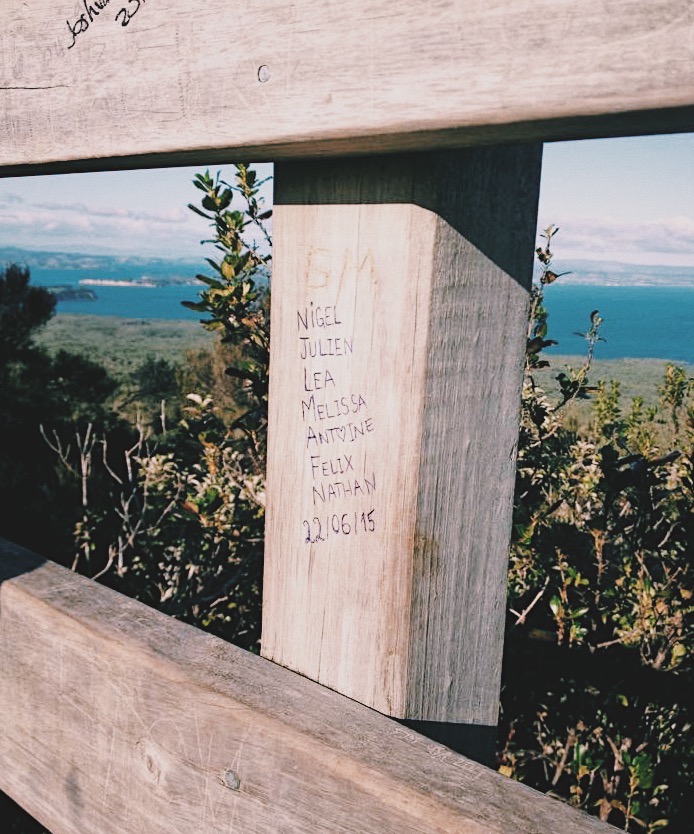 GM
NiGEL
JULIEN
LEA
MELISSA
ANT♡INE
FELIX
NATHAN
22/06/15